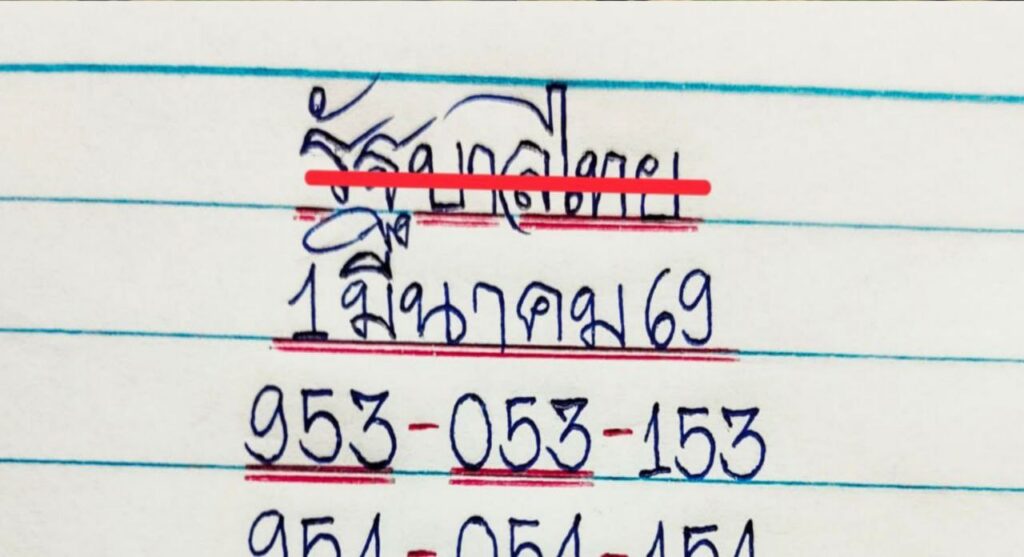 รัฐบาลไทย
1 มีนาคม 69
953-053-153
951-051-151